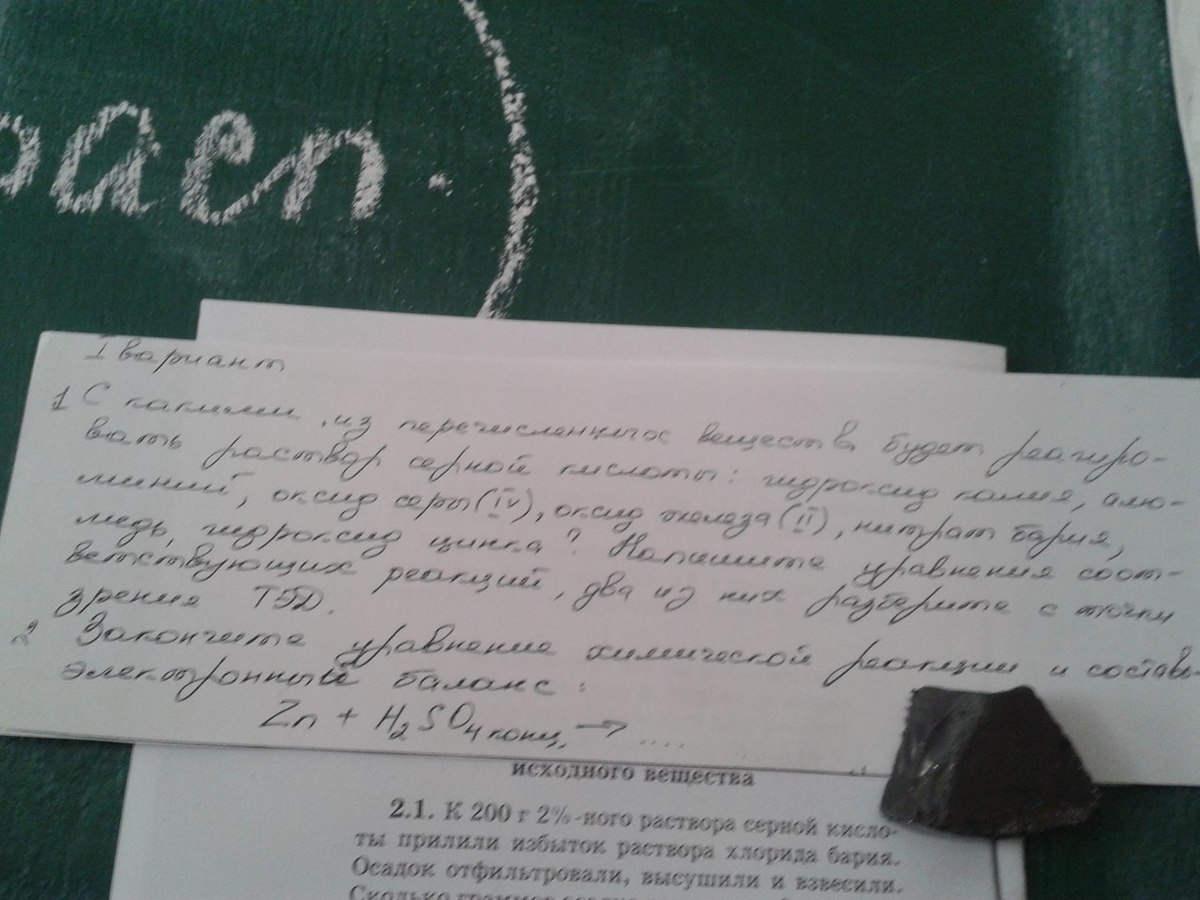 раств.
I вариант
1 С какими из перечисленных веществ будет реагиро-
вать раствор серной кислоты: гидроксид калия, алю-
миний, оксид серы (IV), оксид железа (II), нитрат бария,
медь, гидроксид цинка? Напишите уравнения соот-
ветствующих реакций, два из них разберите с точки
зрения ТЭД.
2 Закончите уравнение химической реакции и составь-
электронный баланс:
Zn + H₂SO₄ конц. → ....
исходного вещества
2.1. К 200 г 2%-ного раствора серной кисло-
ты прилили избыток раствора хлорида бария.
Осадок отфильтровали, высушили и взвесили.
Сколько граммов осадка